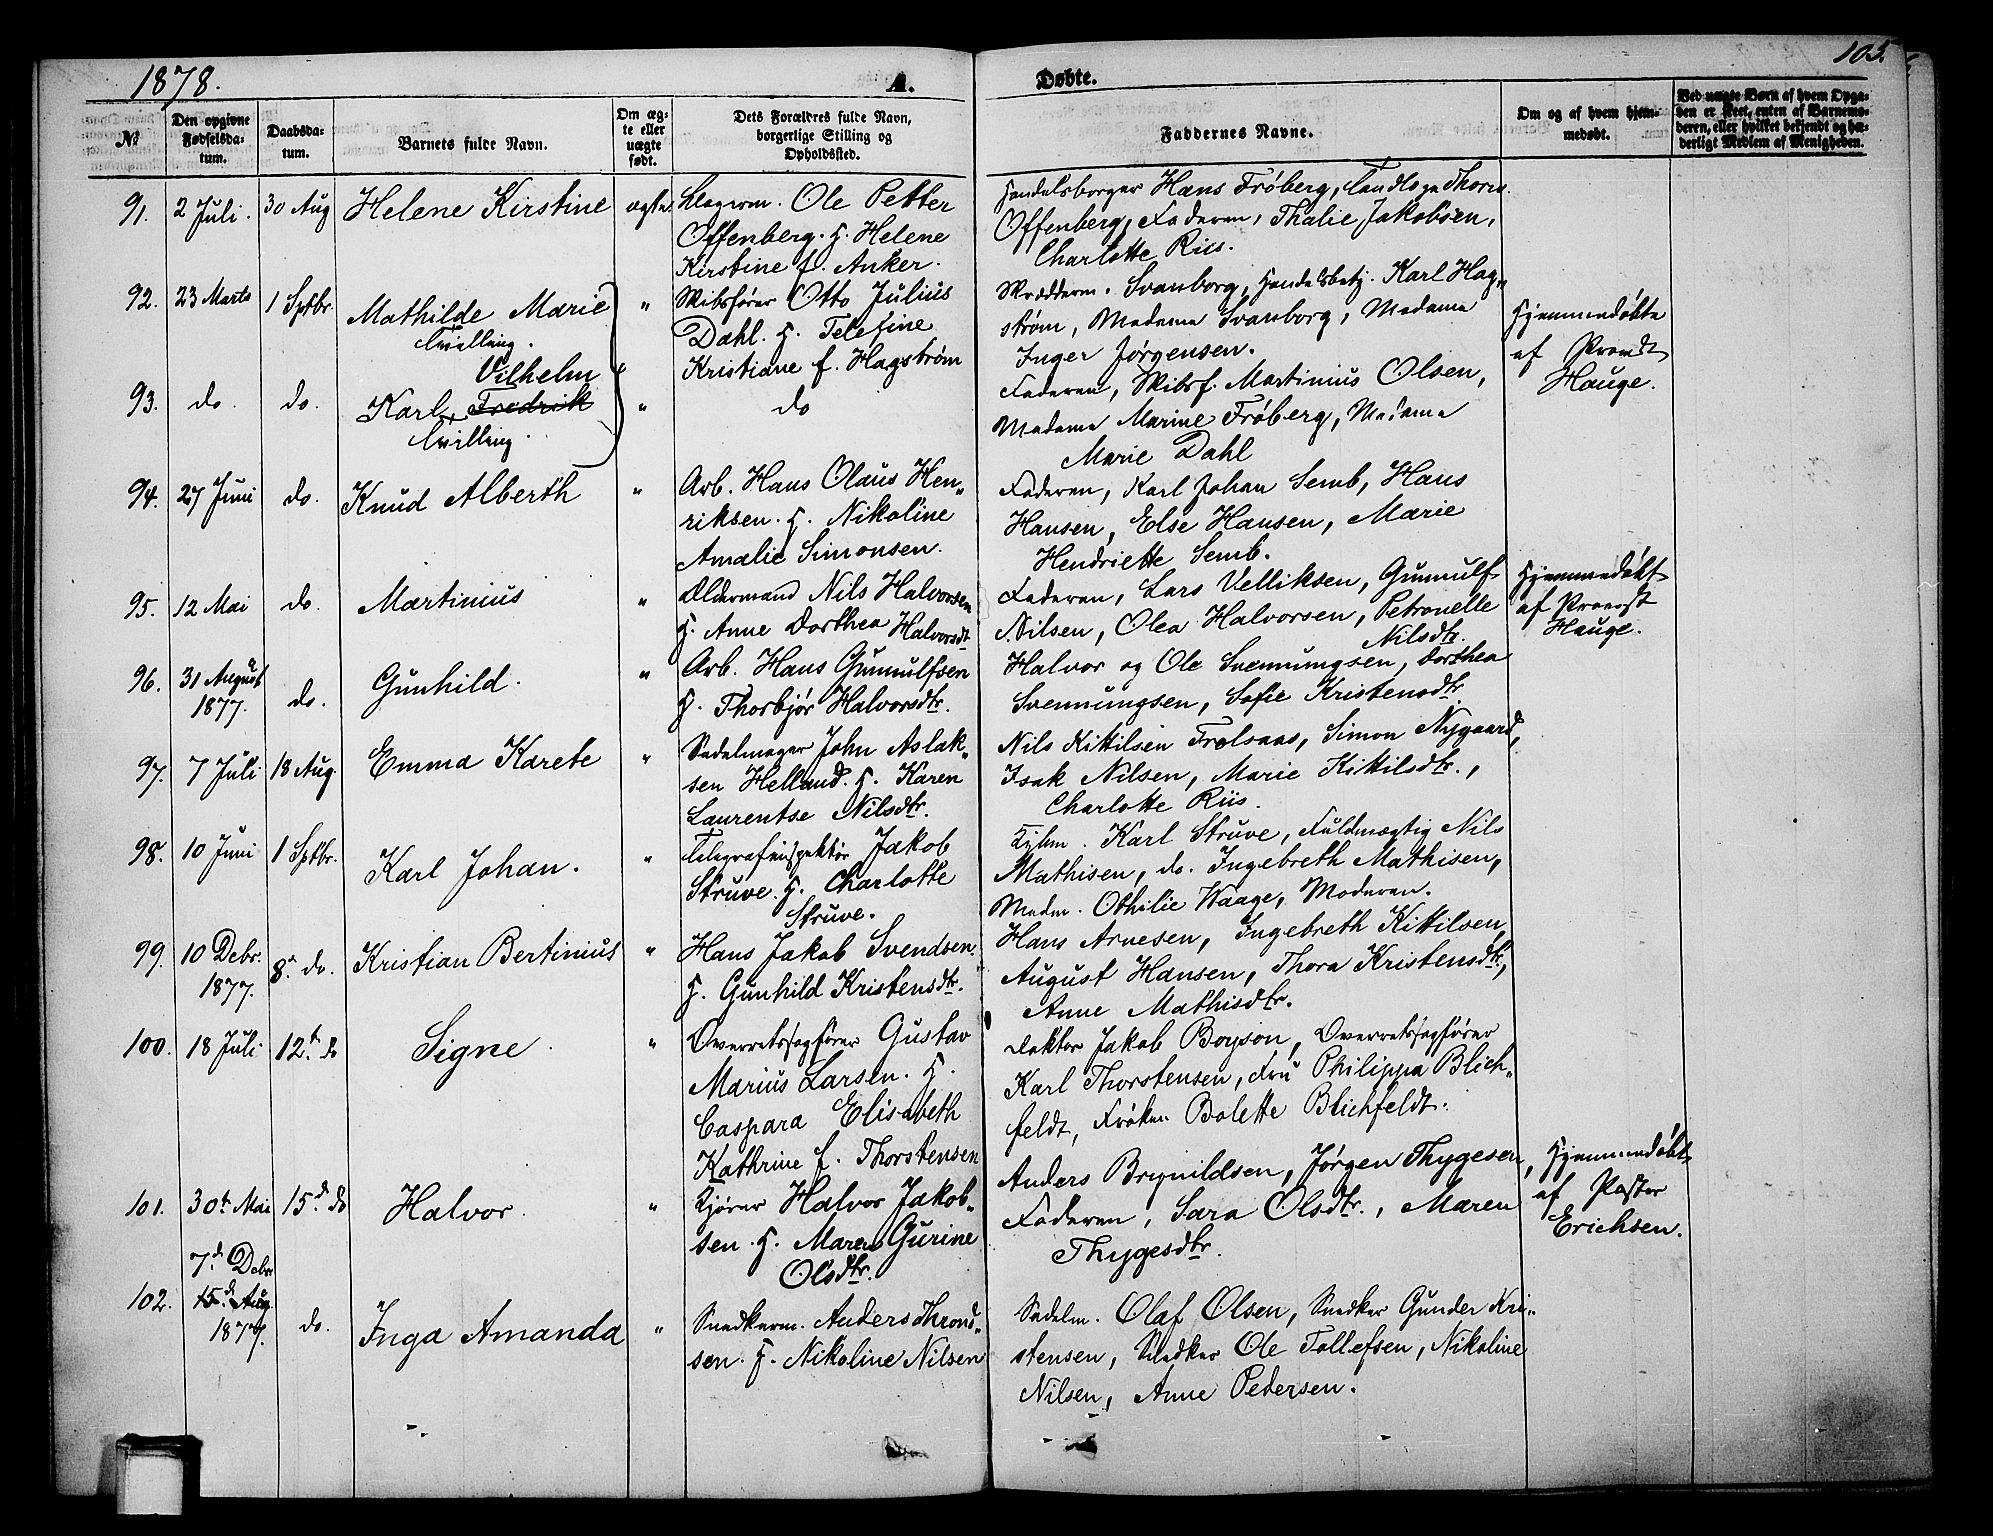 1878.
A.
Døbte.
105.
No
Den opgivne Fødselsdatum.
Daabsdatum.
Barnets fulde Navn.
Om ægte eller uægte født.
Dets Forældres fulde Navn, borgerlige Stilling og Opholdssted.
Faddernes Navne.
Om og af hvem hjemmedøbt.
Ved uægte Børn af hvem Opgaven er skeet, enten af Barnemoderen, eller hvilket bekjendt og hæderligt Medlem af Menigheden.
91. 2 Juli. 30 Aug Helene Kirstine ægte
Slagerm. Ole Petter
Offenberg. H. Helene
Kirstine f. Anker.
Handelsborger Hans Frøberg,
Offenberg, Faderen, Thalie Jakobsen,
Charlotte Riis.
92. 23 Marts 1 Sptbr. Mathilde Marie "
Tvilling.
Skibsfører Otto Julius
Dahl. H. Telefine
Kristiane f. Hagstrøm
Skrædderm. Svanborg, Handelsbetj. Karl Hag„
strøm, Madame Svanborg, Madame
Inger Jørgensen.
Hjemmedøbte
af Provst
Hauge.
93. do. do. Vilhelm
Karl, Fredrik "
Tvilling.
do
Faderen, Skibsf. Martinius Olsen,
Madame Marine Frøberg, Madame
Marie Dahl
94. 27 Juni do. Knud Alberth "
Arb. Hans Olaus Hen„
riksen. H. Nikoline
Amalie Simonsen.
Faderen, Karl Johan Semb, Hans
Hansen, Else Hansen, Marie
Hendriette Semb.
95. 12 Mai do. Martinius "
Oldermand Nils Halvorsen
H. Anne Dorthea Halvorsdt
Faderen, Lars Velliksen, Gunnulf
Nilsen, Olea Halvorsen, Petronelle
Nilsdtr.
Hjemmedøbt
af Provst
Hauge.
96. 31 August
1877. do. Gunhild. "
Arb. Hans Gunnulfsen
H. Thorbjør Halvorsdtr.
Halvor og Ole Svennungsen, Dorthea
Svennungsen, Sofie Kristensdtr.
97. 7 Juli 18 Aug. Emma Karete "
Sadelmager John Aslak„
sen Helland. H. Karen
Laurentse Nilsdtr.
Nils Kittilsen Frolsaas, Simon Nygaard,
Isak Nilsen, Marie Kittilsdtr.,
Charlotte Riis.
98. 10 Juni 1 Sptbr. Karl Johan. "
Telegrafinspektør Jakob
Struve. H. Charlotte
Struve.
Karl Struve, Fuldmægtig Nils
Mathisen, do. Ingebreth Mathisen,
Madm. Othilie Waage, Moderen.
99. 10 Debr.
1877. 8de do. Kristian Bertinius "
Hans Jakob Svendsen.
H. Gunhild Kristensdtr.
Hans Arnesen, Ingebreth Kittilsen,
August Hansen, Thora Kristensdtr.,
Anne Mathisdtr.
100. 18 Juli 12te do Signe. "
Overretssagfører Gustav
Marius Larsen. H.
Caspara Elisabeth
Kathrine f. Thorstensen
Doktor Jakob Boyson, Overretssagfører
Karl Thorstensen, Fru Philippa Blich„
feldt, Frøken Bolette Blichfeldt.
101. 30te Mai 15de do Halvor. "
Kjører Halvor Jakob„
sen. H. Maren Gurine
Olsdtr.
Anders Brynildsen, Jørgen Thygesen,
Faderen, Sara Olsdtr., Maren
Thygesdtr.
Hjemmedøbt
af Pastor
Erichsen.
102. 7de Debr
15de Aug.
1877. do. Inga Amanda "
Snedkerm. Anders Thrond„
sen. H. Nikoline Nilsen
Sadelm. Olaf Olsen, Snedker Gunder Kri„
stensen, Snedker Ole Tollefsen, Nikoline
Nilsen, Anne Pedersen.